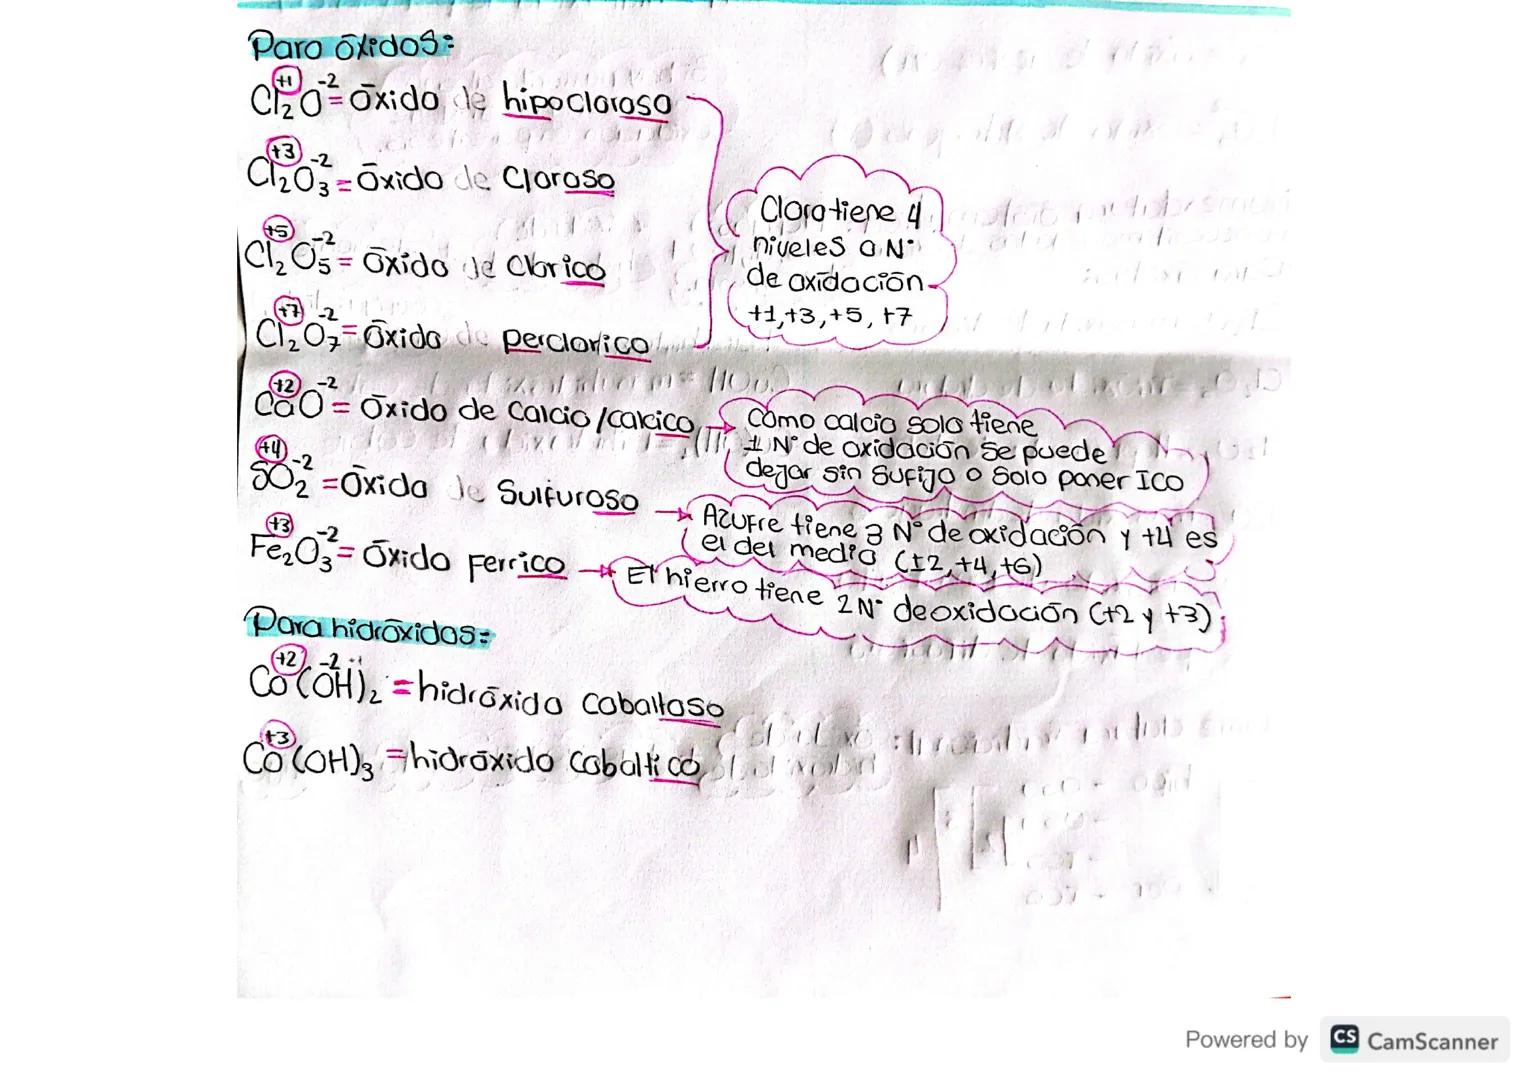 Para óxidos:
+1 -2
Cl₂O = óxido de hipocloroso
+3 -2
Cl₂O₃ = óxido de Cloroso
+5 -2
Cl₂O₅ = óxido de Clorico
+7 -2
Cl₂O₇ = óxido de perclorico
Cloro tiene 4
niveles o N°
de oxidación
+1, +3, +5, +7
+2 -2
CaO = óxido de Calcio / calcico
Como calcio solo tiene
1 N° de oxidación se puede
dejar sin sufijo o solo poner ICO
+4 -2
SO₂ = óxido de Sulfuroso
Azufre tiene 3 N° de oxidación y +4 es
el del medio (±2, +4, +6)
+3 -2
Fe₂O₃ = óxido Ferrico
El hierro tiene 2 N° de oxidación (+2 y +3)
Para hidróxidos:
+2 -2
Co(OH)₂ = hidróxido Cobaltoso
+3
Co(OH)₃ = hidróxido Cobaltico
Powered by CS CamScanner